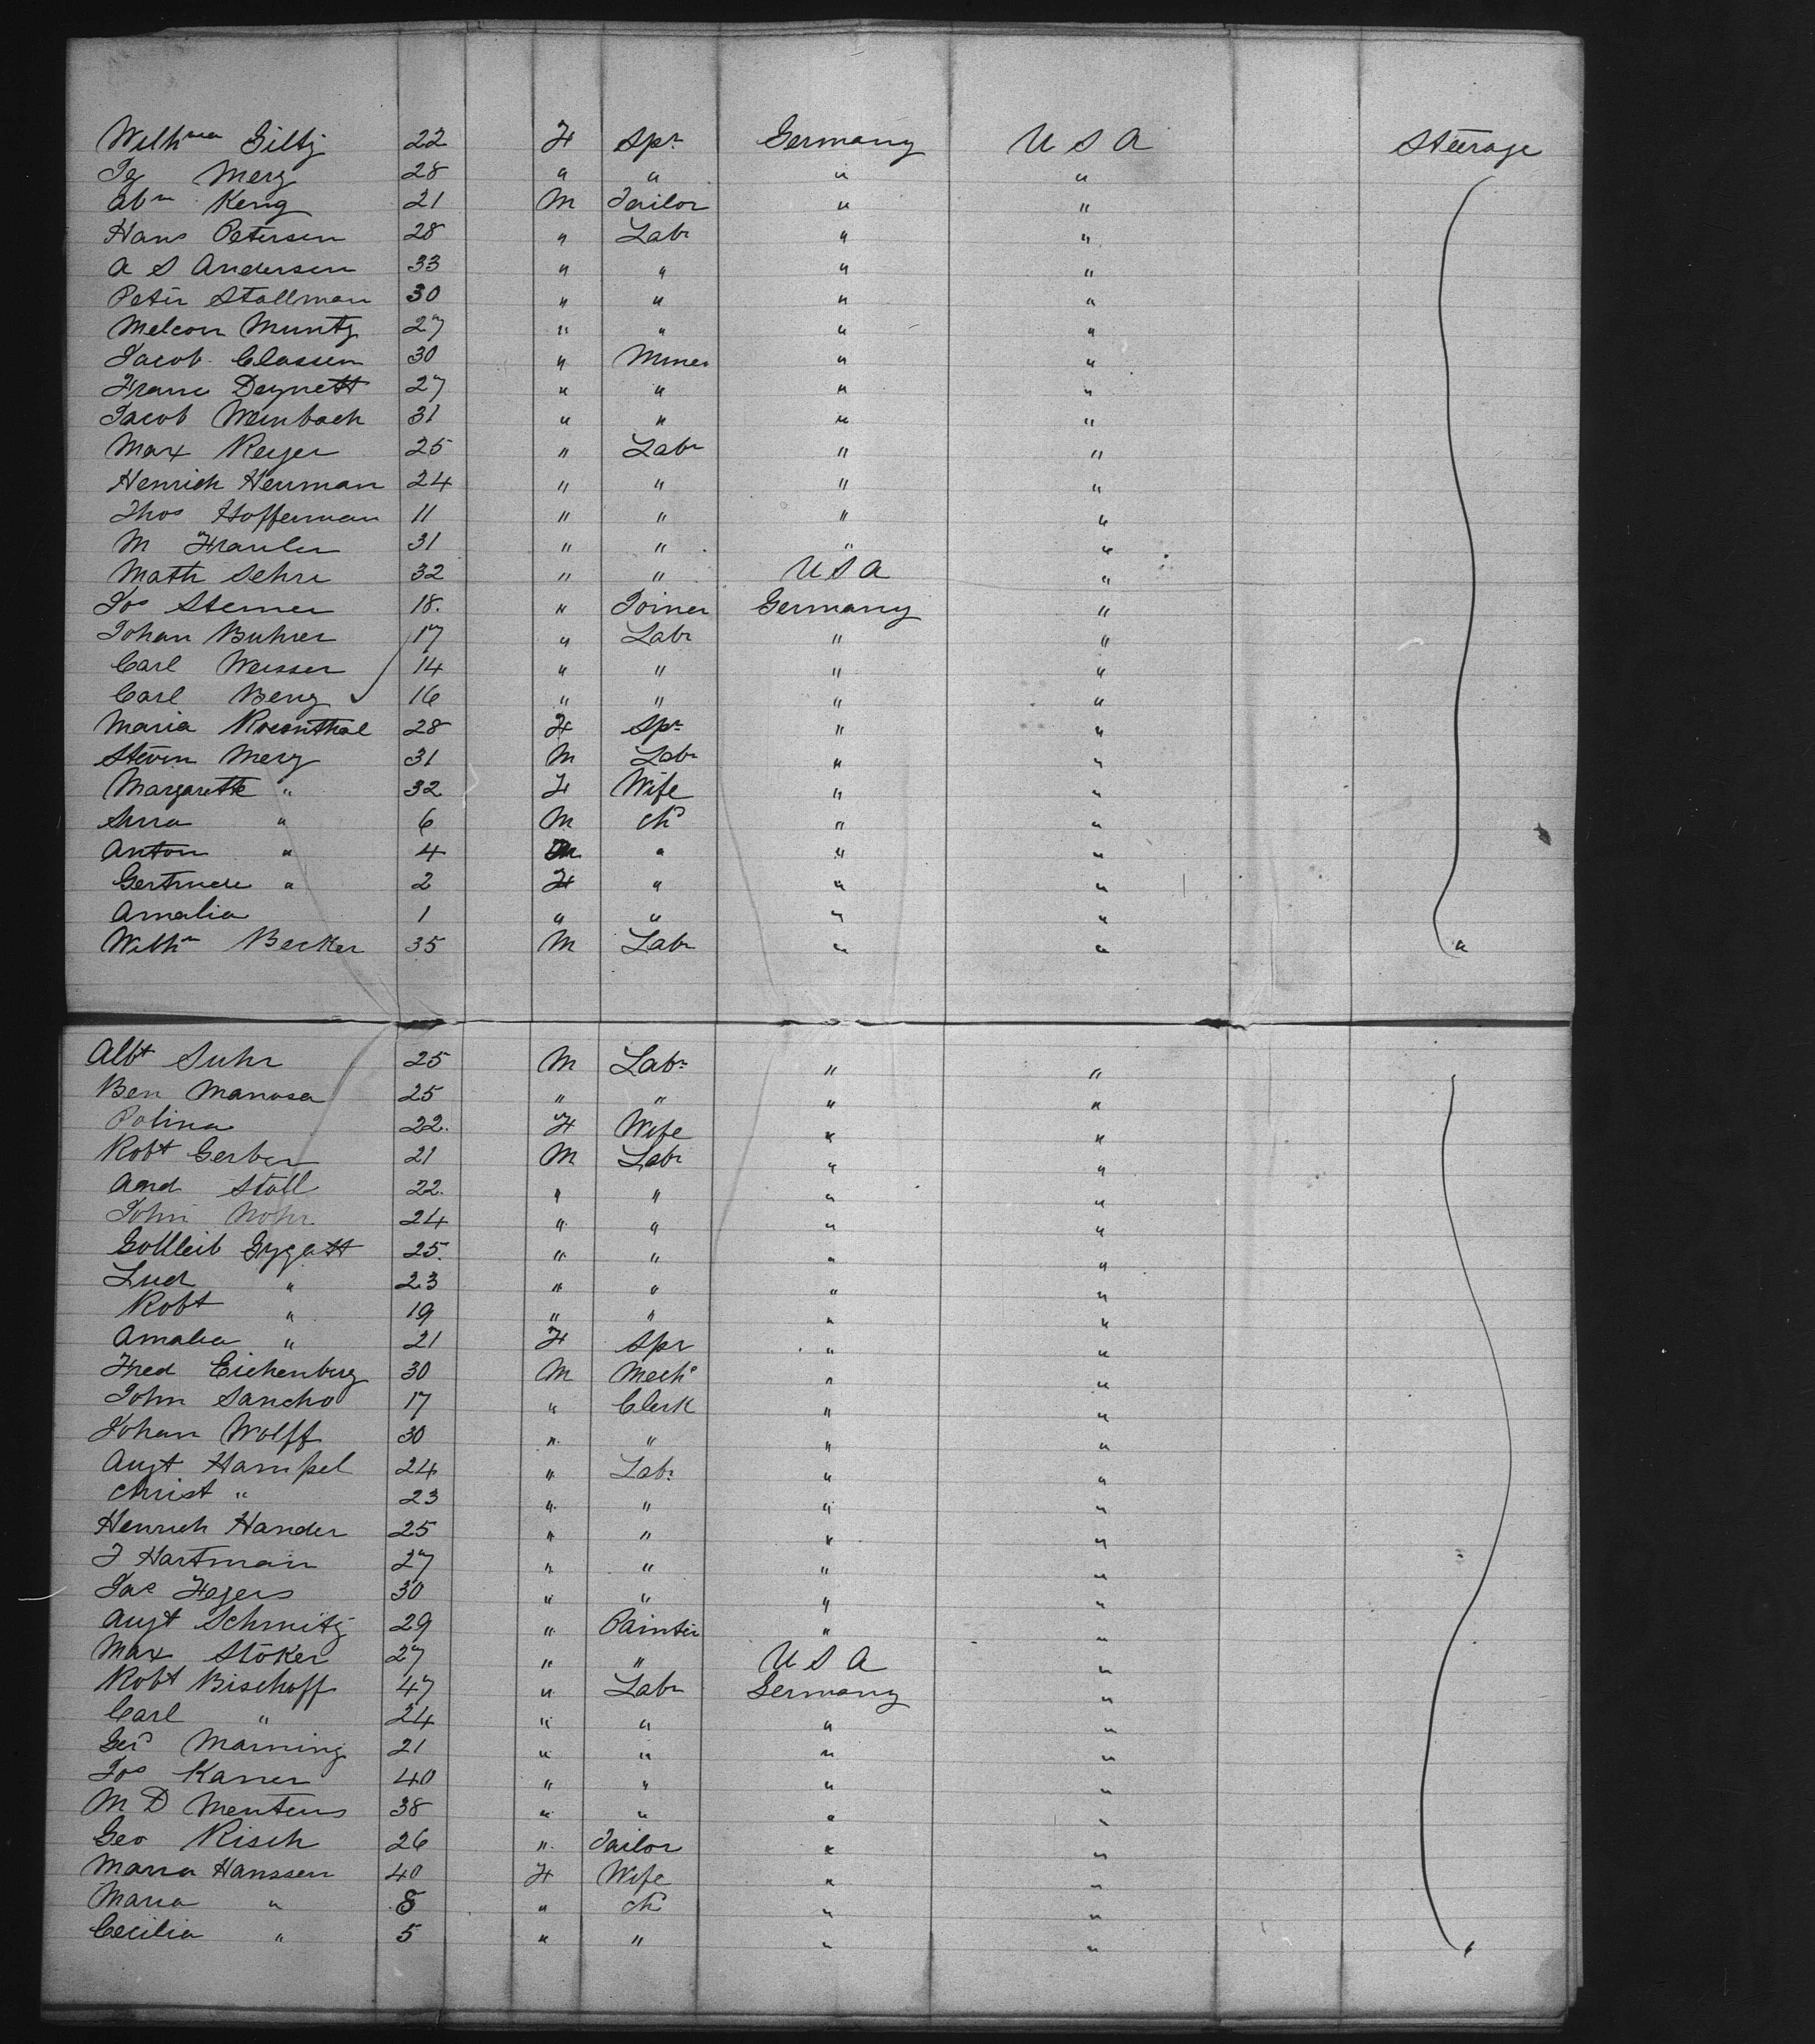 Wilhma Giltz 22 F Spr Germany U S A Steerage
Ig Merz 28 " " " "
Abm Keng 21 M Tailor " "
Hans Petersen 28 " Labr " "
A S Andersen 33 " " " "
Peter Stallman 30 " " " "
Melcon Muntz 27 " " " "
Jacob Classen 30 " Miner " "
Franc Deynett 27 " " " "
Jacob Weinbach 31 " " " "
Max Reyer 25 " Labr " "
Henrich Herman 24 " " " "
Thos Hofferman 11 " " " "
M 31 " " " "
Math Sehre 32 " " U S A "
Jos Sterner 18. " Joiner Germany "
Johan Buhrer 17 " Labr " "
Carl Weisser 14 " " " "
Carl Benz 16 " " " "
Maria Rosenthal 28 F Spr " "
Steven Merz 31 M Labr " "
Margareth " 32 F Wife " "
" 6 M chd " "
Anton " 4 M " " "
Gertrude " 2 F " " "
Amalia 1 " " " "
Wilhm Becker 35 M Labr " " "
Albt Suhr 25 M Labr " "
Ben Manosa 25 " " " "
Polina 22. F Wife " "
Robt Gerber 21 M Labr " "
And Stoll 22. " " " "
John Mohr 24 " " " "
Gottleib Gygatt 25. " " " "
Lud " 23 " " " "
Robt " 19 " " " "
Amalia " 21 F Spr " "
Fred Eichenberg 30 M Mechc " "
John Sancho 17 " Clerk " "
Johan Wolff 30 " " " "
Augt Hampel 24 " Labr " "
Christ " 23 " " " "
Henrich Hander 25 " " " "
J Hartman 27 " " " "
Jac Hegers 30 " " " "
Augt Schmitz 29 " Painter " "
Max Stoker 27 " " U S A "
Robt Bischoff 47 " Labr Germany "
Carl " 24 " " " "
Gerd Marning 21 " " " "
Jos Karrer 40 " " " "
M D Mentens 38 " " " "
Geo Risch 26 " Tailor " "
Maria Hanssen 40 F Wife " "
Maria " 8 " chd " "
Cecilia " 5 " " " " "